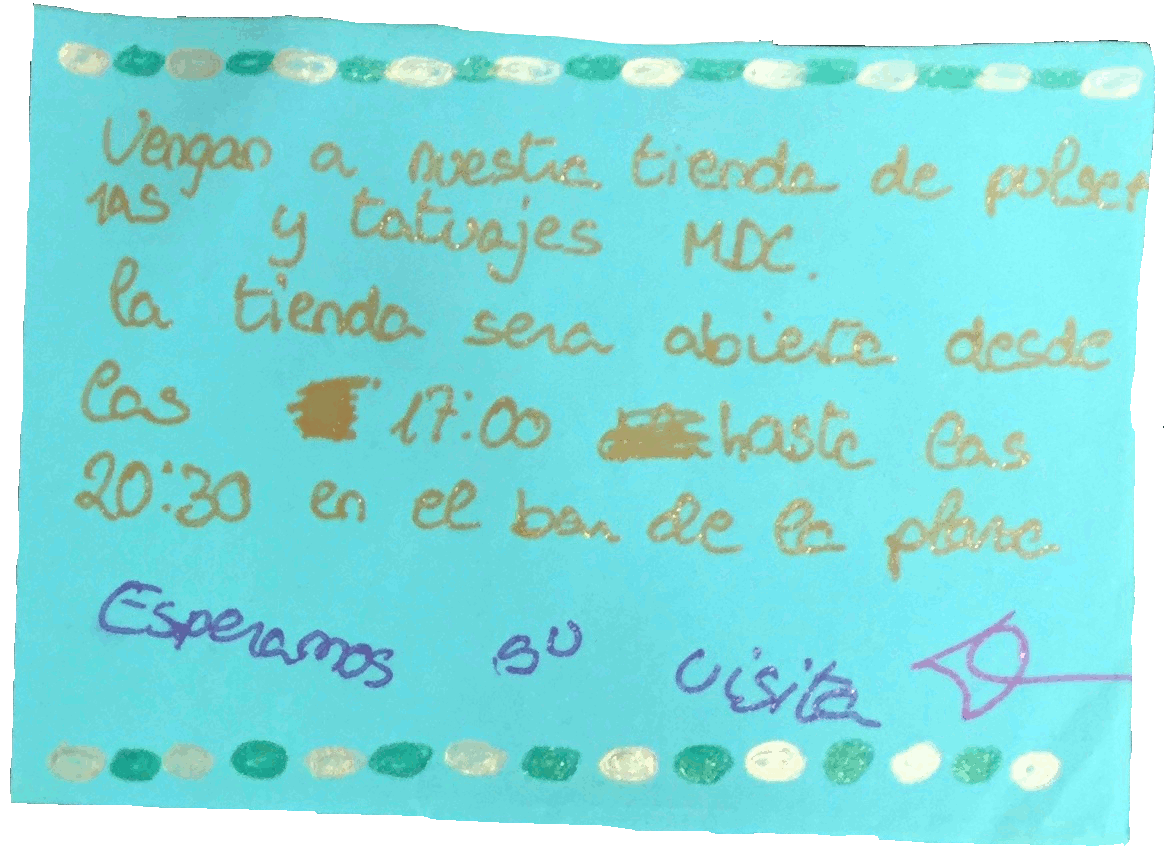 Vengan a nuestra tienda de pulser
ras y tatuajes MDC.
la tienda sera abierta desde
las 17:00 hasta las
20:30 en el bar de la plaza
Esperamos su visita